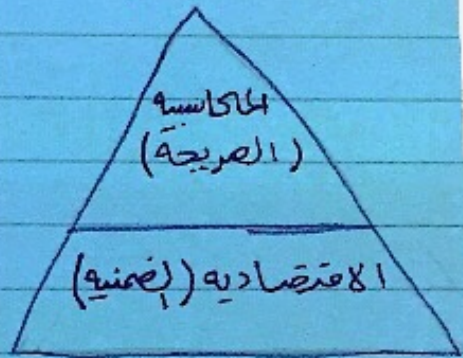 المحاسبيه
(الصريحة)
الاقتصاديه (الضمنيه)